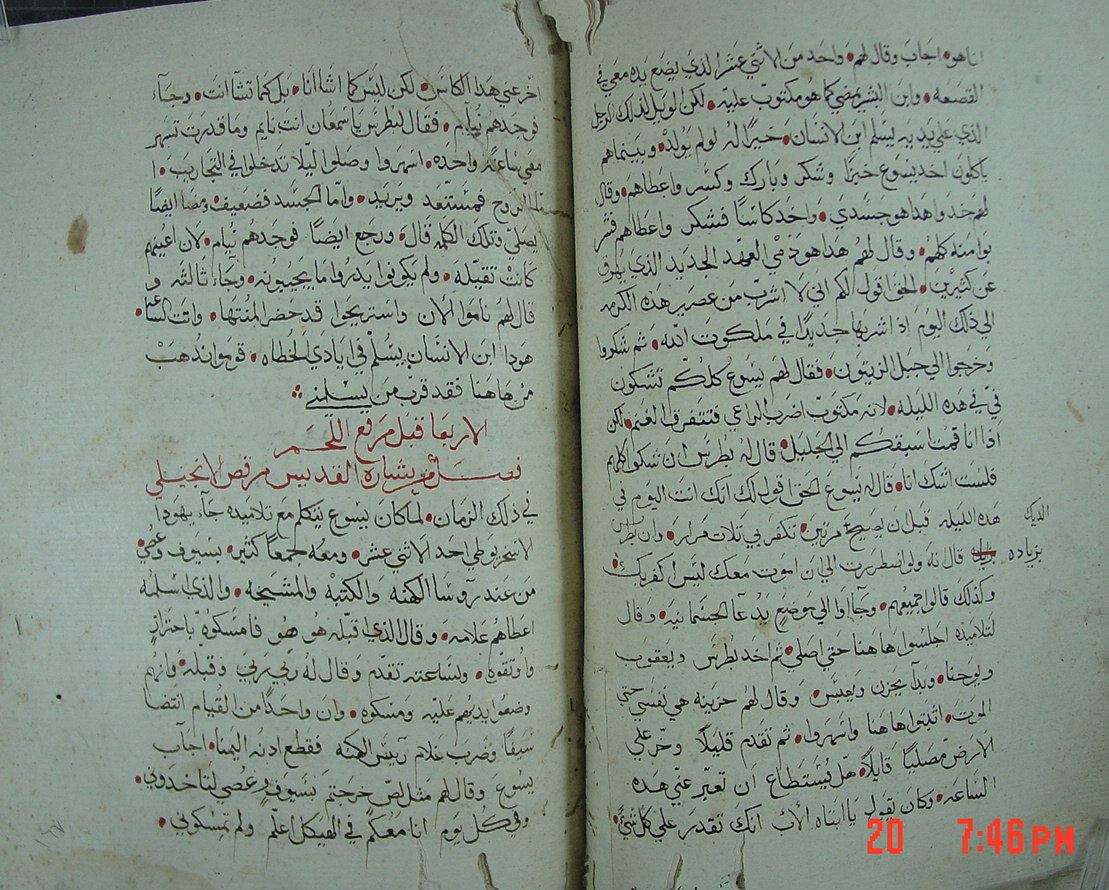 اناهو • اجاب وقال لهم • واحد من الاثني عشر الذي يضع يده معي في
القصعه • وابن البشر يمضي كما هو مكتوب عليه • لكن الويل لذلك الرجل
الذي علي يديه يسلم ابن الانسان • خيرًا له لو لم يولد • وبينماهم
ياكلون اخد يسوع خبزًا وشكر وبارك وكسر واعطاهم • وقال
لهم خدوا هذا هو جسدي • واخد كاسًا فشكر واعطاهم فشر
بوا منه كلهم • وقال لهم هذا هو دمي العهد الجديد الذي يهرق
عن كثيرين • الحق اقول لكم اني لا اشرب من عصير هذه الكرمه
الي ذلك اليوم اذ اشربها جديدًا في ملكوت الله • ثم شكروا
وخرجوا الي جبل الزيتون • فقال لهم يسوع كلكم تشكون
في في هذه الليله • لانه مكتوب اضرب الراعي فتتفرق الغنم • لكن
اذا انا قمت اسبقكم الي الجليل • قال له بطرس ان شكوا كلهم
فلست اشك انا • قال له يسوع الحق اقول لك انك انت اليوم في
هذه الليله قبل ان يصيح مرتين • تكفر بي تلات مرار • وان بطرس
الديك
قال له ولو اضطررت الي ان اموت معك ليس اكفر بك •
بزياده
وكذلك قالوا جميعهم • وجااوا الي موضع يدعا الجسمانيه • وقال
لتلاميذه اجلسوا هاهنا حتي اصلي • ثم اخد بطرس ويعقوب
ويوحنا • وبدا يحزن ويعبس • وقال لهم حزينه هي نفسي حتي
الموت • اثبتوا هاهنا واسهروا • ثم تقدم قليلًا وخر علي
الارض مصليًا قايلًا • هل يستطاع ان تعبر عني هذه
الساعه • وكان يقول يا ابتاه الاب انك تقدر علي كل شي •
اخر عني هذا الكاس • لكن ليس كما اشا انا • بل كما تشا انت • وجاء
فوجدهم نيام • فقال لبطرس يا سمعان انت نايم وما قدرت تسهر
معي ساعة واحده • اسهروا وصلوا ليلا تدخلوا في التجاريب • ا
ما الروح فمستعد ويريد • واما الجسد فضعيف • ومضا ايضًا
يصلي وتلك الكلمه قال • ورجع ايضًا فوجدهم نيام • لان اعينهم
كانت تقيله • ولم يكونوا يدروا ما يجيبونه • وجاء ثالثه و
قال لهم ناموا الان واستريحوا قد حضر المنتها • واتت الساعه •
هودا ابن الانسان يسلم في ايادي الخطاه • قوموا ندهب
من هاهنا فقد قرب من يسلمني
الاربعا قبل مرفع اللحم
فصل من بشارة القديس مرقص الانجيلي
في ذلك الزمان • لما كان يسوع يتكلم مع تلاميذه جاء يهودا
الاسخريوطي احد الاثني عشر • ومعه جمعًا كثير • بسيوف وعصي
من عند روسا الكهنه والكتبه والمشيخه • والذي اسلمه
اعطاهم علامه • وقال الذي اقبله هو هو فامسكوه باحتراز
واوتقوه • ولساعته تقدم وقال له ربي ربي وقبله • وانهم
وضعوا ايديهم عليه ومسكوه • وان واحدًا من القيام انتضا
سيفًا وضرب غلام رييس الكهنه فقطع ادنه اليمنا • اجاب
يسوع وقال لهم مثل لص خرجتم بسيوف وعصي لتاخدوني •
وفي كل يوم انا معكم في الهيكل اعلم ولم تمسكوني •
20 7:46 PM